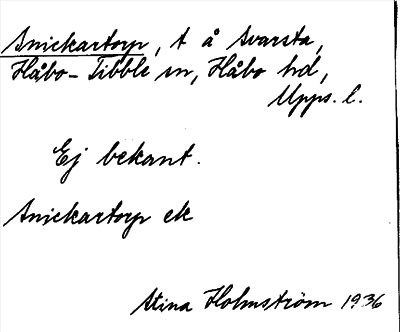 Snickartorp, t å Svarsta,
Håbo-Tibble sn, Håbo hd,
Upps. l.
Ej bekant.
Snickartorp ek
Stina Holmström 1936